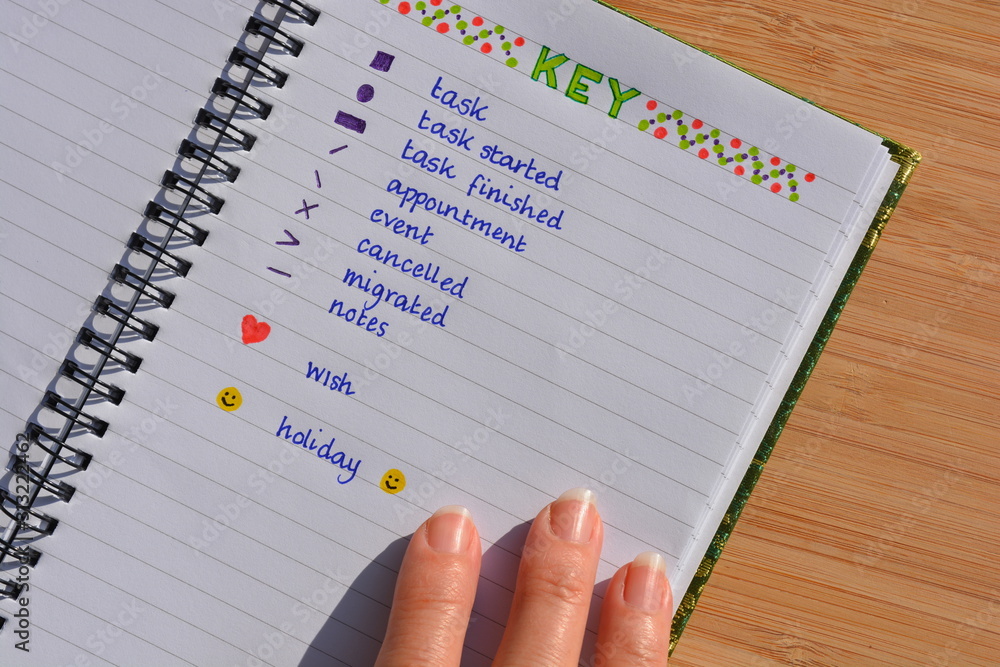 KEY
task
task started
task finished
appointment
event
cancelled
migrated
notes
wish
holiday
Adobe Stock | #313222462